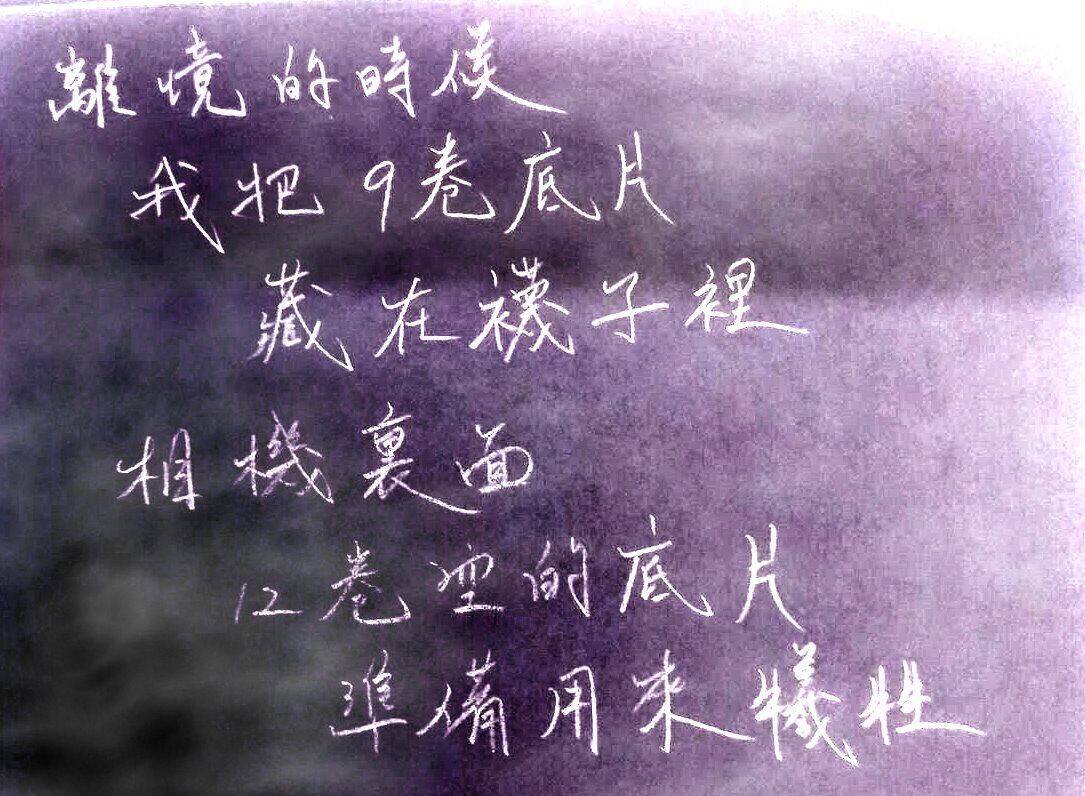 離境的時候
我把9卷底片
藏在襪子裡
相機裏面
12卷空的底片
準備用來犧牲